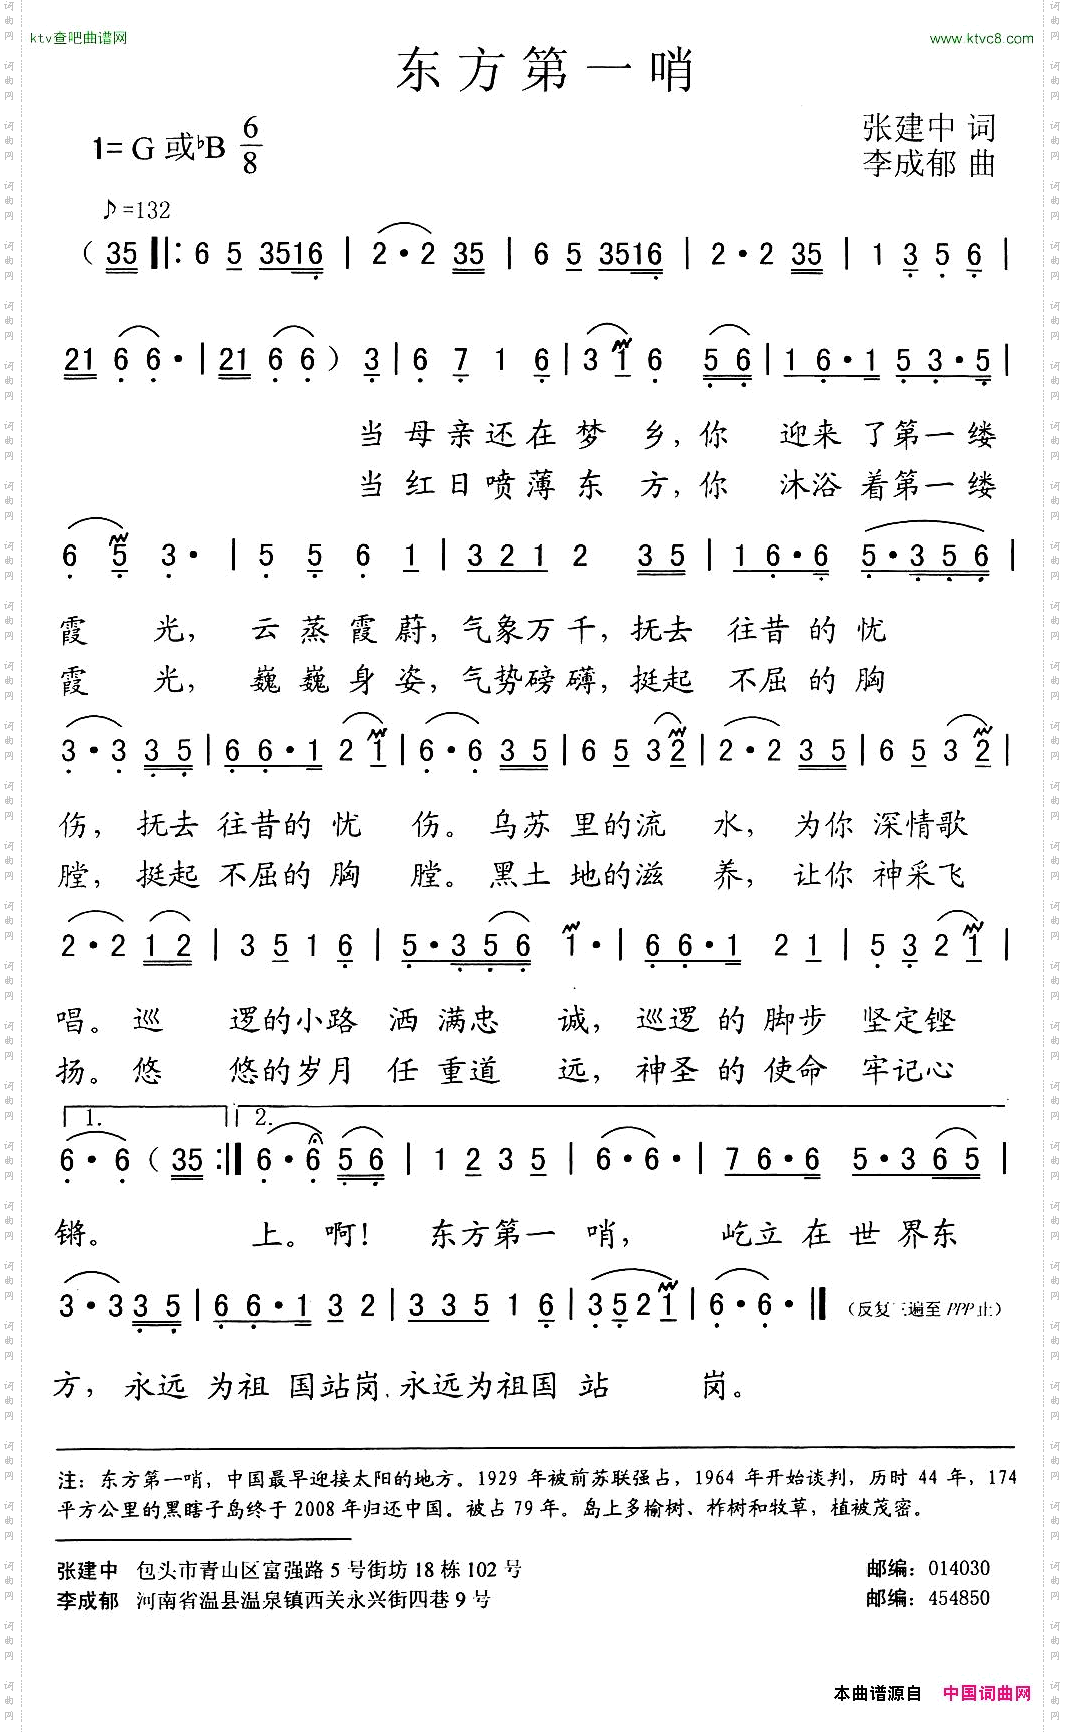 ktv查吧曲谱网 www.ktvc8.com
东方第一哨
1=G或♭B 6/8
张建中 词
李成郁 曲
♪=132
( 35 ‖: 6 5 3516 | 2·2 35 | 6 5 3516 | 2·2 35 | 1 3 5 6 |
21 6 6· | 21 6 6· ) 3 | 6 7 1 6 | 3 1 6 56 | 1 6·1 5 3·5 |
当 母亲还在 梦 乡, 你 迎来 了第一缕
当 红日喷薄 东 方, 你 沐浴 着第一缕
6 5 3· | 5 5 6 1 | 321 2 35 | 1 6·6 5·356 |
霞 光, 云蒸霞蔚, 气象万千, 抚去 往昔的忧
霞 光, 巍巍身姿, 气势磅礴, 挺起 不屈的胸
3·3 35 | 6 6·1 2 1 | 6·6 35 | 6 5 3 2 | 2·2 35 | 6 5 3 2 |
伤, 抚去 往昔的 忧 伤。 乌苏 里的流 水, 为你 深情歌
膛, 挺起 不屈的 胸 膛。 黑土 地的滋 养, 让你 神采飞
2·2 12 | 3 5 1 6 | 5·356 1· | 6 6·1 2 1 | 5 3 2 1 |
唱。 巡 逻的小路 洒 满忠 诚, 巡逻 的 脚步 坚定铿
扬。 悠 悠的岁月 任 重道 远, 神圣 的 使命 牢记心
1. 2.
6·6 ( 35 :‖ 6·6 56 | 1 2 3 5 | 6·6· | 7 6·6 5·3 65 |
锵。 上。 啊! 东方第一 哨, 屹立 在 世 界东
3·3 35 | 6 6·1 3 2 | 3 3 5 1 6 | 3 5 2 1 | 6·6· ‖ (反复三遍至PPP止)
方, 永远 为祖 国站岗, 永远为祖国 站 岗。
注: 东方第一哨, 中国最早迎接太阳的地方。1929 年被前苏联强占, 1964 年开始谈判, 历时 44 年, 174
平方公里的黑瞎子岛终于 2008 年归还中国。被占 79 年。岛上多榆树、柞树和牧草, 植被茂密。
张建中 包头市青山区富强路 5 号街坊 18 栋 102 号 邮编: 014030
李成郁 河南省温县温泉镇西关永兴街四巷 9 号 邮编: 454850
本曲谱源自 中国词曲网